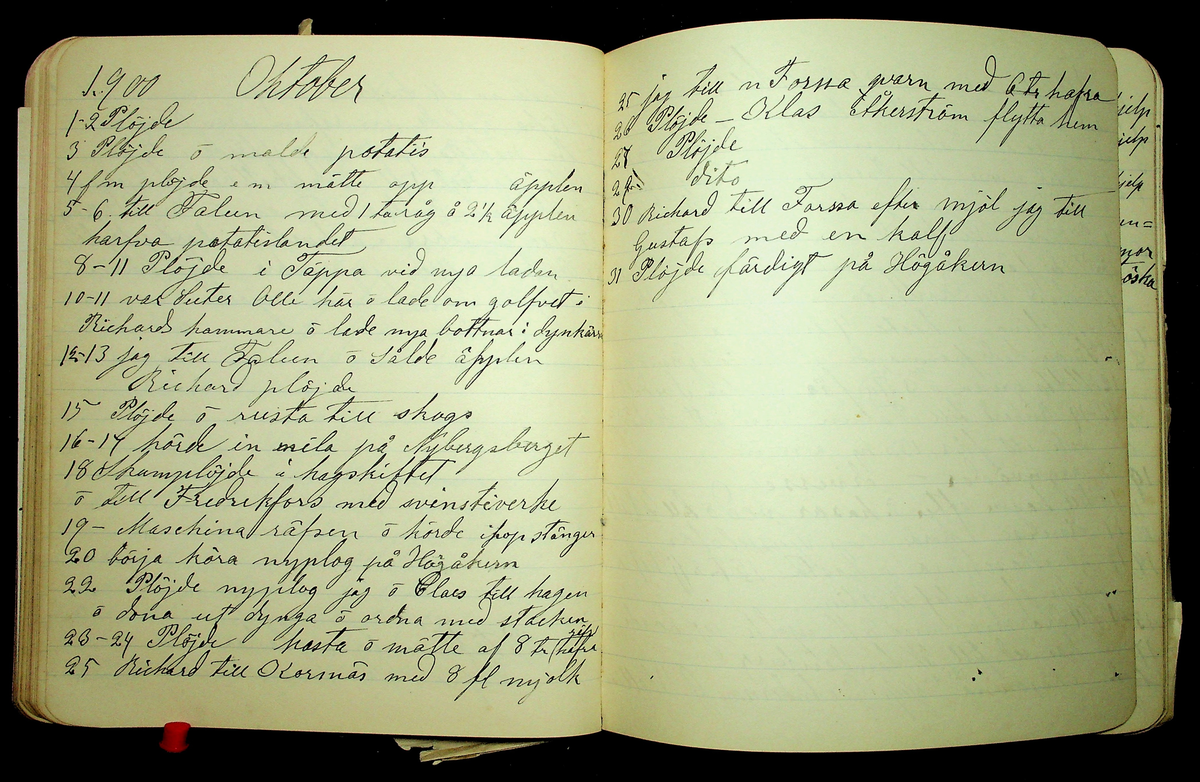 1900 Oktober
1-2 Plöjde
3 Plöjde o malde potatis
4 fm plöjde e m mätte opp äpplen
5-6. till Falun med 1 to råg å 2 1/2 äpplen
harfva potatislandet
8-11 Plöjde i Täppa vid nya ladan
10-11 var Seuter Olle här o lade om golfvet i
Richards kammare o lade nya bottnar i dynkärra
12-13 jag till Falun o Sålde äpplen
Richard plöjde
15 Plöjde o rusta till skogs
16-17 körde in mila på Nybergsberget
18 Skumplöjde i hagskiftet
o till Fredrikfors med svinstiverke
19- Maschina räfsen o körde ihop stänger
20 börja köra nyplog på Högåkern
22 Plöjde nyplog jag o Claes till hagen
o dona ut dynga o ordna med stacken
23-24 Plöjde kasta o mätte af 8 tr hafra
25 Richard till Korsnäs med 8 fl mjölk
25 jag till n Forssa qvarn med 6 tr hafra
26 Plöjde - Klas Åkerström flytta hem
27 Plöjde
29 dito
30 Richard till Forssa efter mjöl jag till
Gustafs med en kalf
31 Plöjde färdigt på Högåkern
jelp
jelp
jelp